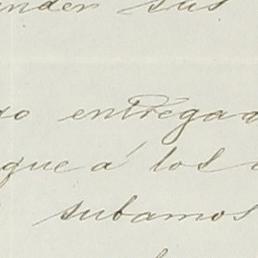 nder sus
o entrega
que á los
subamos